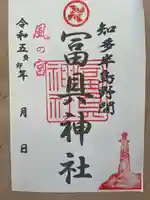 知多半島野間
冨具神社
風の宮
令和五癸卯年 月 日